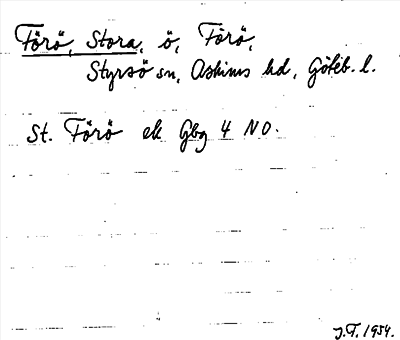 Förö, Stora, ö, Förö,
Styrsö sn, Askims hd, Göteb. l.
St. Förö ek Gbg 4 NO.
J.F. 1954.